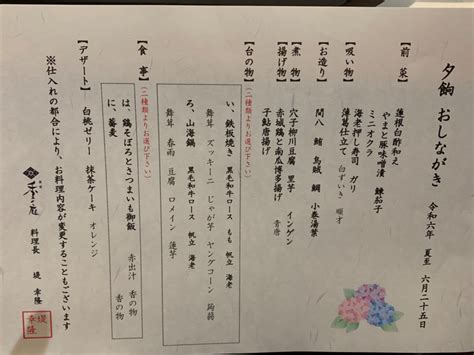 夕餉 おしながき 令和六年 夏至 六月二十五日
【前菜】 蓮根白酢和え
やまと豚味噌漬 鰊茄子
ミニオクラ
海老押し寿司 ガリ
【吸い物】 薄葛仕立て 白ずいき 順才
【お造り】 間八 鮪 烏賊 鯛 小巻湯葉
【煮物】 穴子柳川豆腐 里芋 インゲン
【揚げ物】 赤城鶏と南瓜博多揚げ
子鮎唐揚げ 青唐
【台の物】 (二種類よりお選び下さい)
い、鉄板焼き 黒毛和牛ロース もも 帆立 海老
舞茸 ズッキーニ じゃが芋 ヤングコーン 蒟蒻
ろ、山海鍋 黒毛和牛ロース 帆立 海老
舞茸 春雨 豆腐 ロメイン 蓮芋
【食事】 (二種類よりお選び下さい)
は、鶏そぼろときつまいも御飯 赤出汁 香の物
に、蕎麦 香の物
【デザート】 白桃ゼリー 抹茶ケーキ オレンジ
※仕入れの都合により、お料理内容が変更することもございます
料理長 堤 幸隆
堤
幸隆